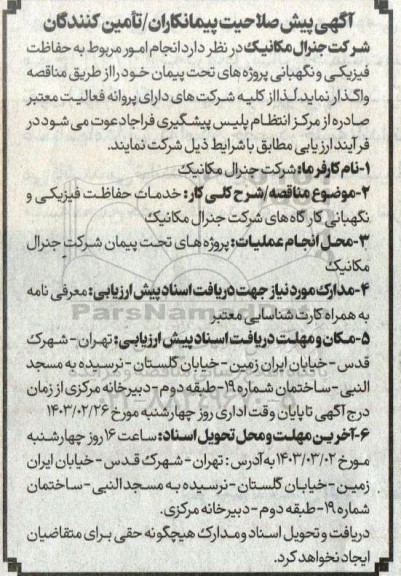 آگهی پیش صلاحیت پیمانکاران/تأمین کنندگان
شرکت جنرال مکانیک در نظر دارد انجام امور مربوط به حفاظت
فیزیکی و نگهبانی پروژه های تحت پیمان خود را از طریق مناقصه
واگذار نماید. لذا از کلیه شرکت های دارای پروانه فعالیت معتبر
صادره از مرکز انتظام پلیس پیشگیری فراجا دعوت می شود در
فرآیند ارزیابی مطابق با شرایط ذیل شرکت نمایند.
۱-نام کارفرما: شرکت جنرال مکانیک
۲-موضوع مناقصه/شرح کلی کار: خدمات حفاظت فیزیکی و
نگهبانی کارگاه های شرکت جنرال مکانیک
۳-محل انجام عملیات: پروژه های تحت پیمان شرکت جنرال
مکانیک
۴-مدارک مورد نیاز جهت دریافت اسناد پیش ارزیابی: معرفی نامه
به همراه کارت شناسایی معتبر
۵-مکان و مهلت دریافت اسناد پیش ارزیابی: تهران - شهرک
قدس - خیابان ایران زمین - خیابان گلستان - نرسیده به مسجد
النبی - ساختمان شماره ۱۹- طبقه دوم - دبیرخانه مرکزی از زمان
درج آگهی تا پایان وقت اداری روز چهارشنبه مورخ ۱۴۰۳/۰۲/۲۶
۶-آخرین مهلت و محل تحویل اسناد: ساعت ۱۶ روز چهارشنبه
مورخ ۱۴۰۳/۰۳/۰۲ به آدرس : تهران - شهرک قدس - خیابان ایران
زمین - خیابان گلستان - نرسیده به مسجد النبی - ساختمان
شماره ۱۹- طبقه دوم - دبیرخانه مرکزی.
دریافت و تحویل اسناد و مدارک هیچگونه حقی برای متقاضیان
ایجاد نخواهد کرد.